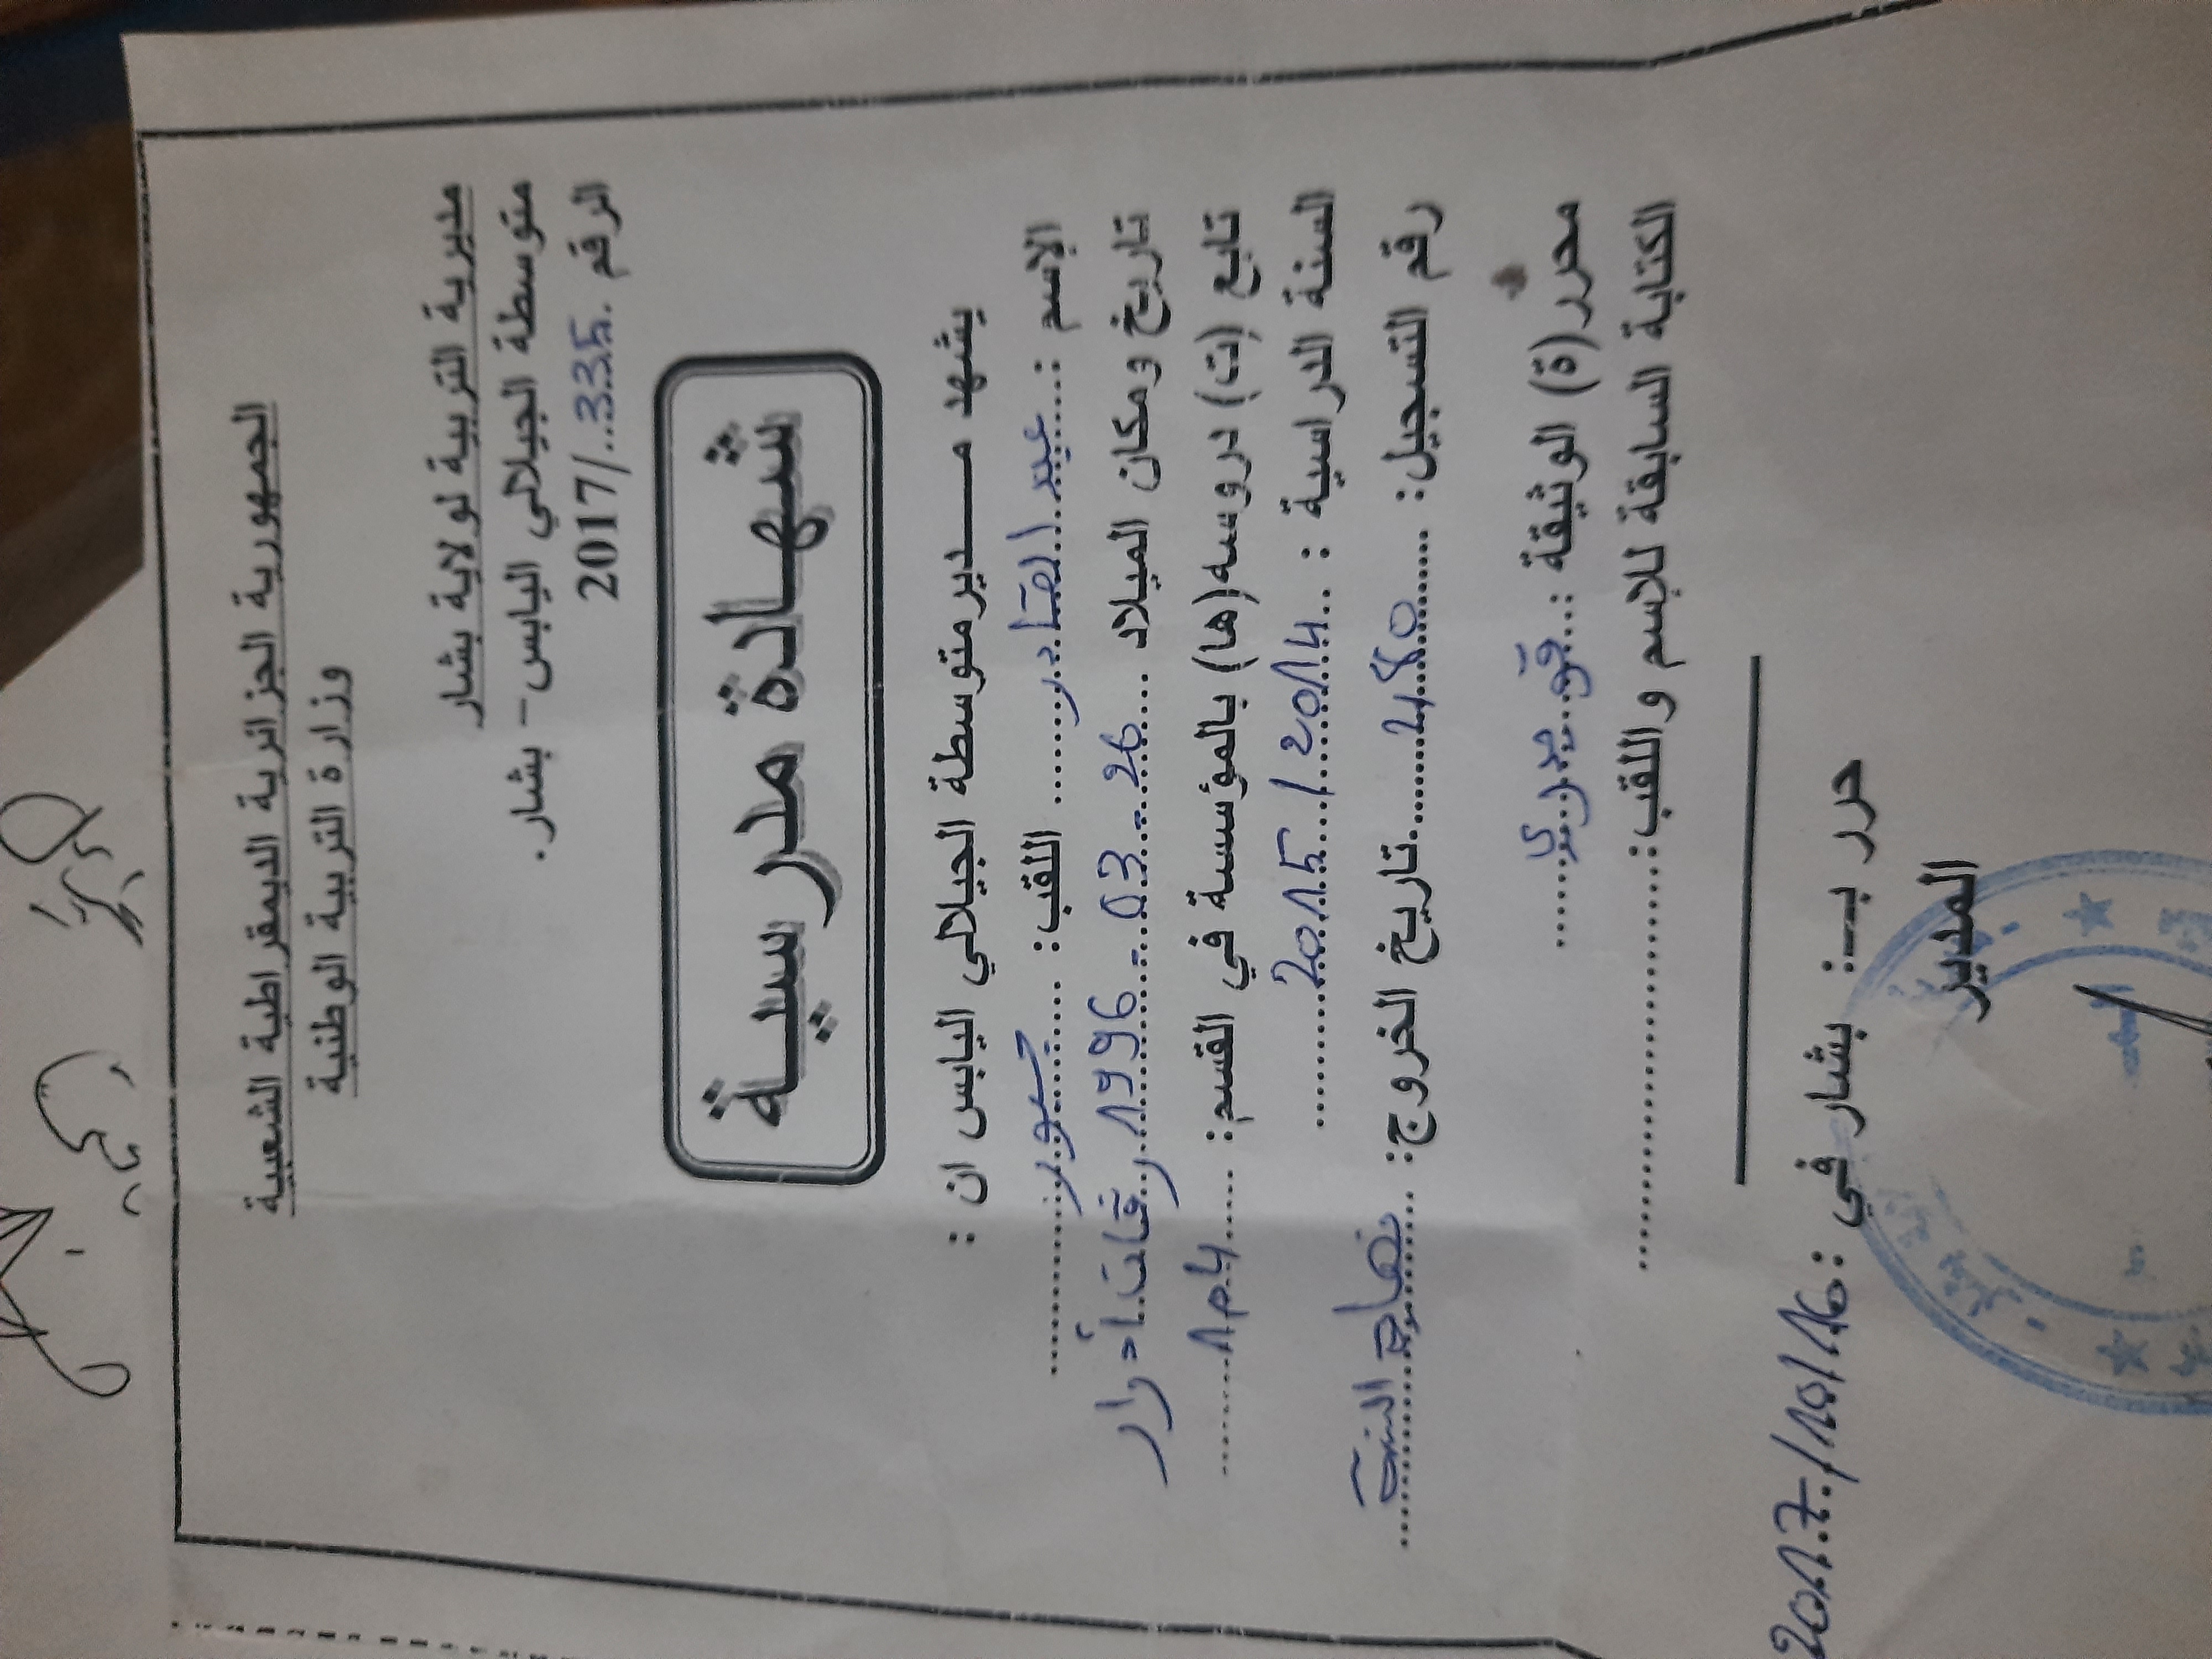 الجمهورية الجزائرية الديمقراطية الشعبية
وزارة التربية الوطنية
مديرية التربية لولاية بشار
متوسطة الجيلالي اليابس – بشار.
الرقم .335../2017
شهادة مدرسية
يشهد مدير متوسطة الجيلالي اليابس ان :
الإسم :......عبد القادر...... اللقب: ......
تاريخ ومكان الميلاد ....26-03-1996 رقان أدرار
تابع (ت) دروسه(ها) بالمؤسسة في القسم: ......4م1......
السنة الدراسية : ..2014/2015......
رقم التسجيل: ......480......تاريخ الخروج: ..نهاية السنة......
محرر(ة) الوثيقة :......
الكتابة السابقة للاسم و اللقب:......
حرر بـ: بشار في :2017/10/16
المدير